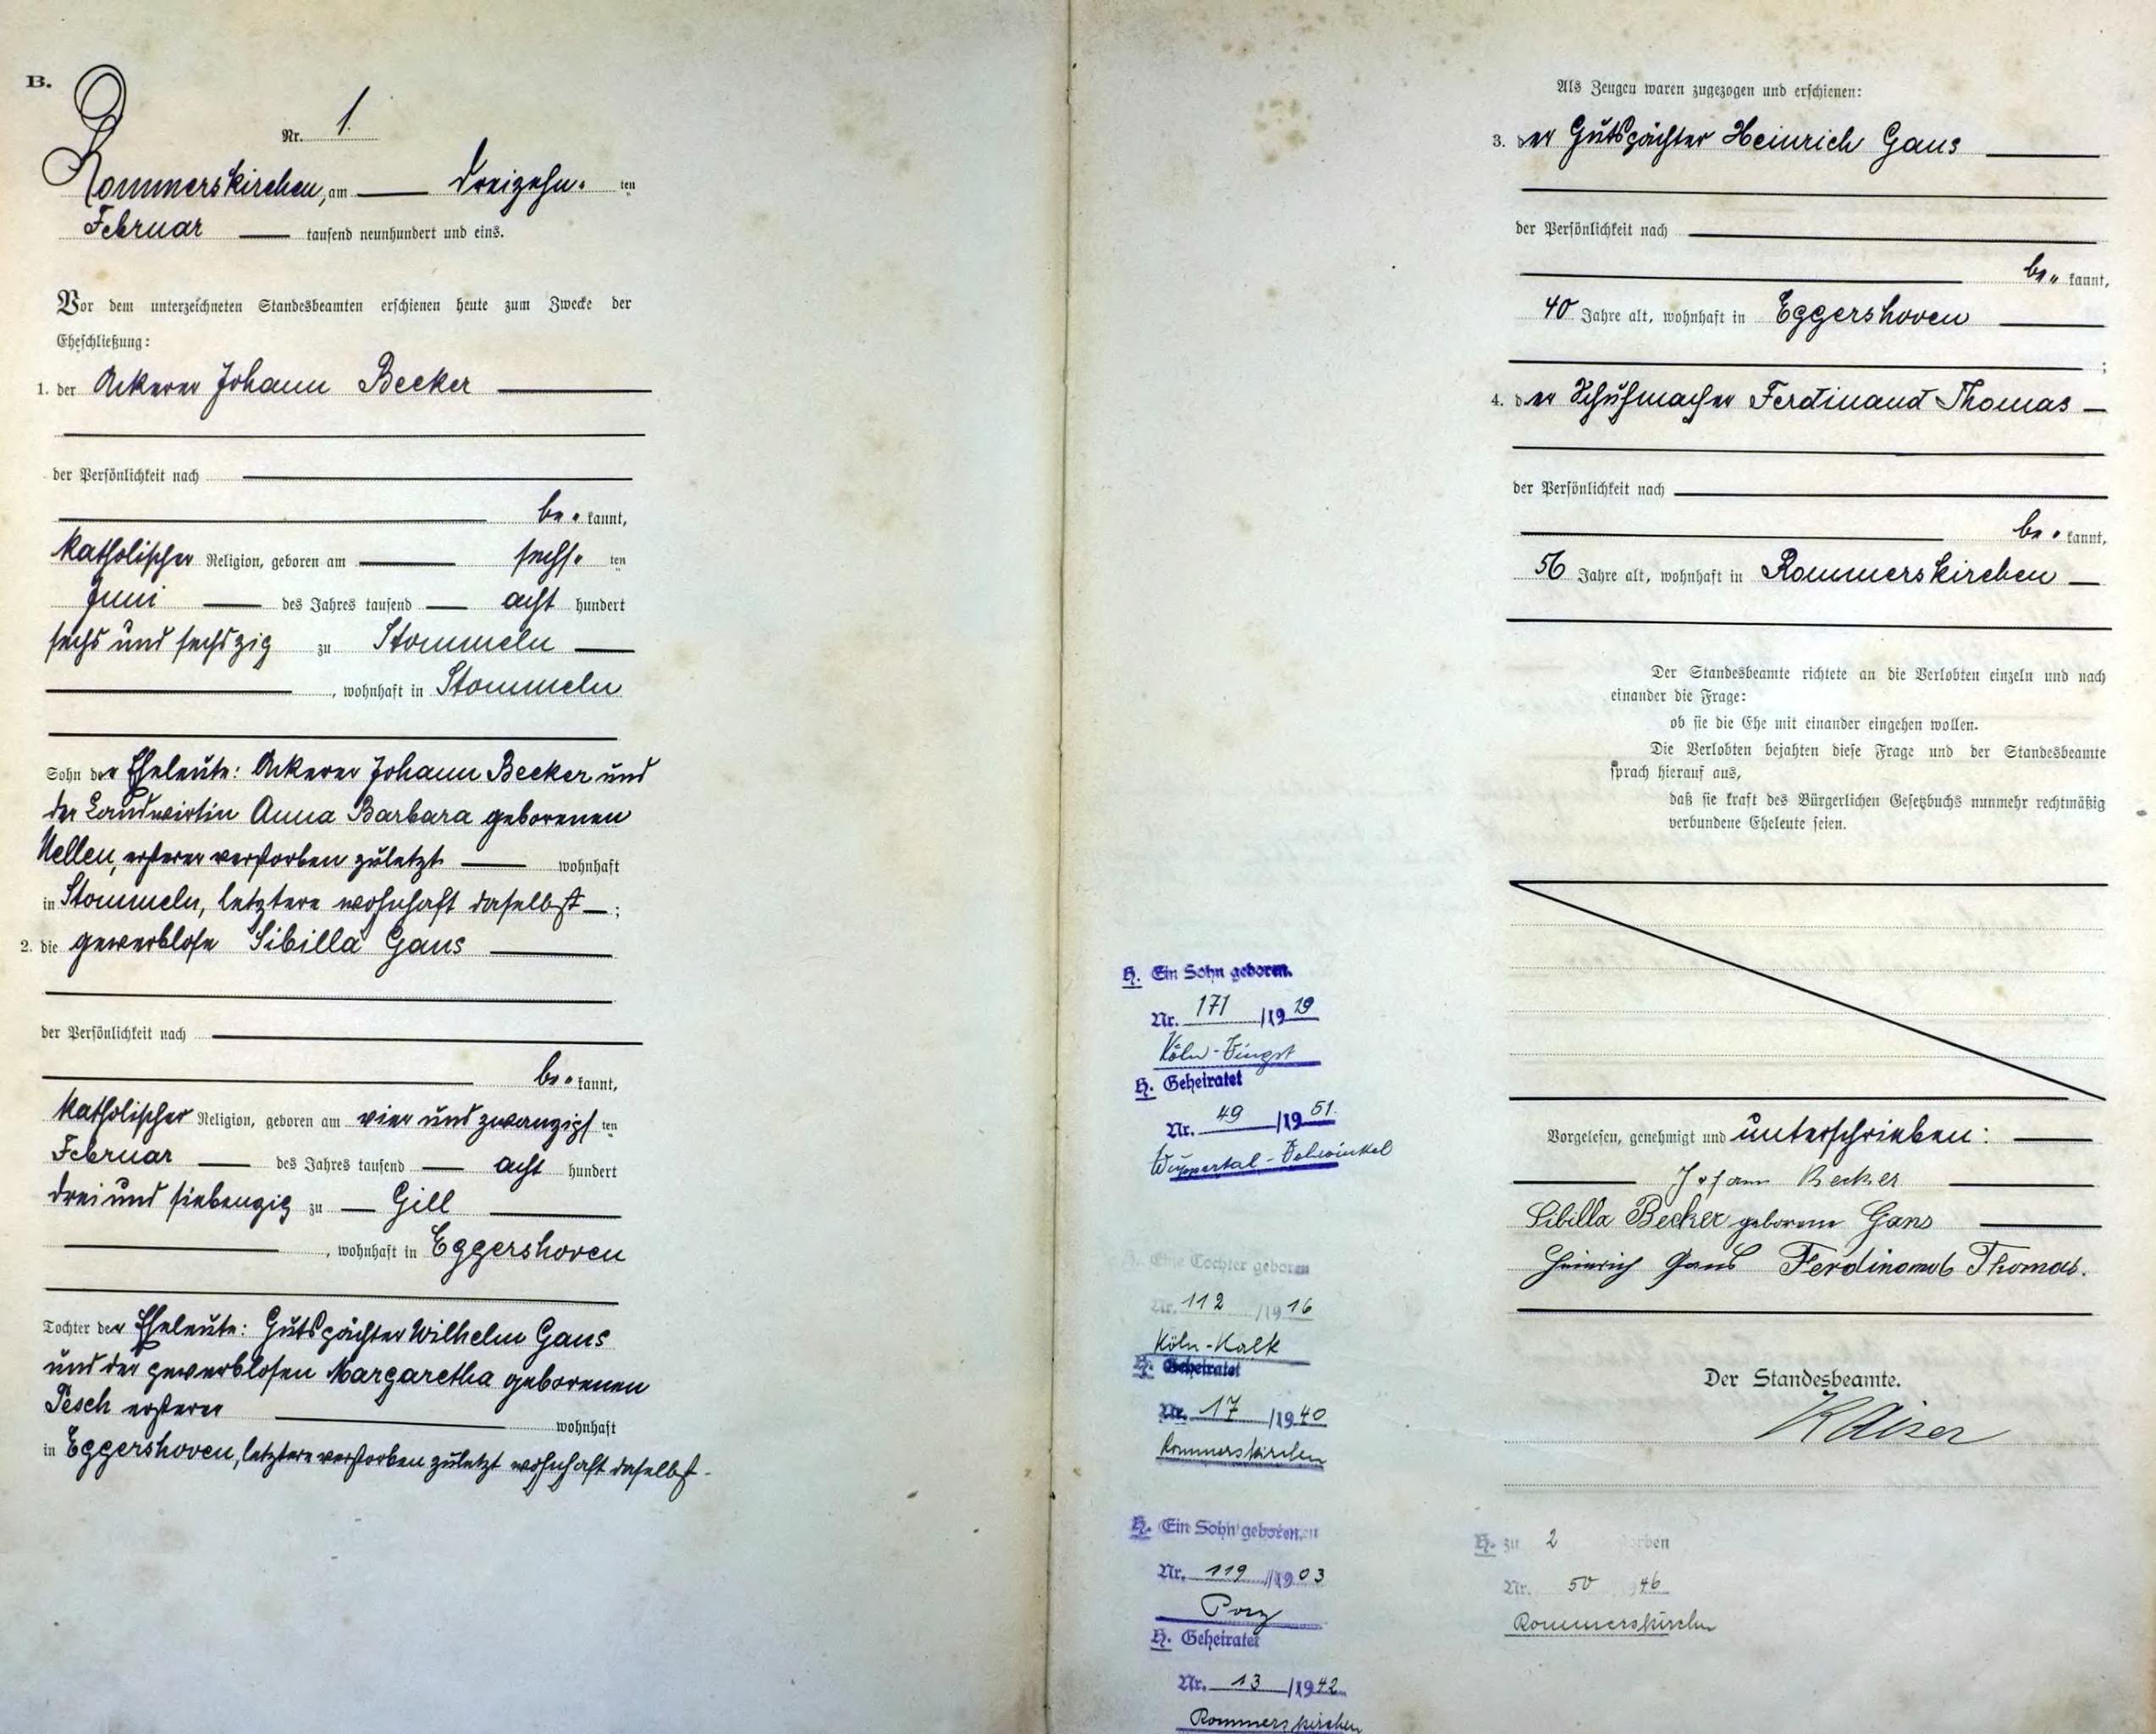 B.
Nr. 1.
Rommerskirchen, am dreizehn ten
Februar tausend neunhundert und eins.
Vor dem unterzeichneten Standesbeamten erschienen heute zum Zwecke der
Eheschließung:
1. der Ackerer Johann Becker
der Persönlichkeit nach
be kannt,
katholischer Religion, geboren am sechs ten
Juni des Jahres tausend acht hundert
sechs und sechszig zu Stommeln
, wohnhaft in Stommeln
Sohn der Eheleute: Ackerer Johann Becker und
der Landwirtin Anna Barbara geborenen
Nellen, ersterer verstorben zuletzt wohnhaft
in Stommeln, letztere wohnhaft daselbst ;
2. die gewerblose Sibilla Gaus
der Persönlichkeit nach
be kannt,
katholischer Religion, geboren am vier und zwanzigs ten
Februar des Jahres tausend acht hundert
drei und siebenzig zu Gill
, wohnhaft in Eggershoven
Tochter der Eheleute: Gutspächter Wilhelm Gaus
und der gewerblosen Margaretha geborenen
Pesch ersterer wohnhaft
in Eggershoven, letztere verstorben zuletzt wohnhaft daselbst.
Als Zeugen waren zugezogen und erschienen:
3. der Gutspächter Heinrich Gaus
der Persönlichkeit nach
be kannt,
40 Jahre alt, wohnhaft in Eggershoven
;
4. der Schuhmacher Ferdinand Thomas
der Persönlichkeit nach
be kannt,
56 Jahre alt, wohnhaft in Rommerskirchen
Der Standesbeamte richtete an die Verlobten einzeln und nach
einander die Frage:
ob sie die Ehe mit einander eingehen wollen.
Die Verlobten bejahten diese Frage und der Standesbeamte
sprach hierauf aus,
daß sie kraft des Bürgerlichen Gesetzbuchs nunmehr rechtmäßig
verbundene Eheleute seien.
Vorgelesen, genehmigt und unterschrieben:
Johann Becker
Sibilla Becker geborene Gans
Heinrich Gaus Ferdinand Thomas.
Der Standesbeamte.
Kaiser
H. Ein Sohn geboren.
Nr. 171 /19 19
Köln-Vingst
H. Geheiratet
Nr. 49 /19 51.
Wuppertal-Vohwinkel
H. Eine Tochter geboren
Nr. 112 /19 16
Köln-Kalk
H. Geheiratet
Nr. 17 /19 40
Rommerskirchen
H. Ein Sohn geboren.
Nr. 119 /19 03
Porz
H. Geheiratet
Nr. 13 /19 42
Rommerskirchen
H. zu 2
Nr. 50 46
Rommerskirchen